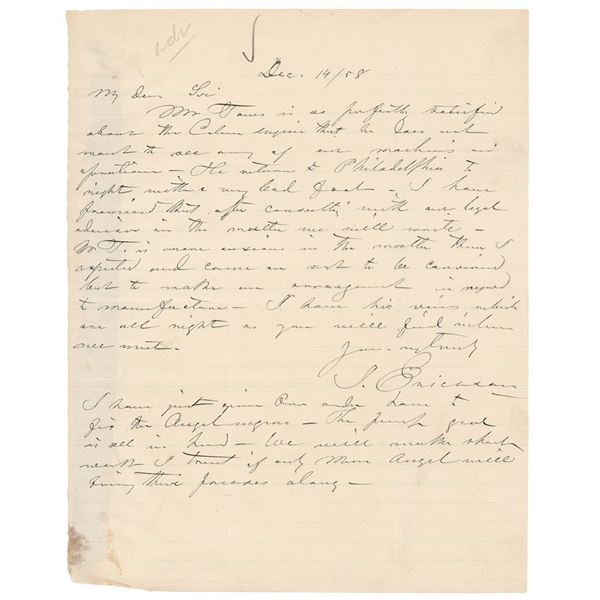 Dec. 14/58
My Dear Sir
Mr Tows is so perfectly satisfied
about the Caloric engine that he does not
want to see any of our machines in
operation – He returns to Philadelphia to
night with a very bad foot – I have
promised that after consulting with our legal
advisor in the matter we will write –
Mr T. is more anxious in the matter than I
expected and came on not to be convinced
but to make an arrangement in regard
to manufacture – I have his views which
are all right as you will find when
we meet.
Yours very truly
J. Ericsson
I have just given Orders to
fix the Angel engine – The pump gear
is all in hand – We will make short
work I trust if only Messrs Angel will
bring their friends along –